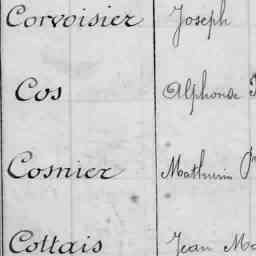 Corvoisier Joseph
Cos Alphonse
Cosnier Mathurin
Collais Jean